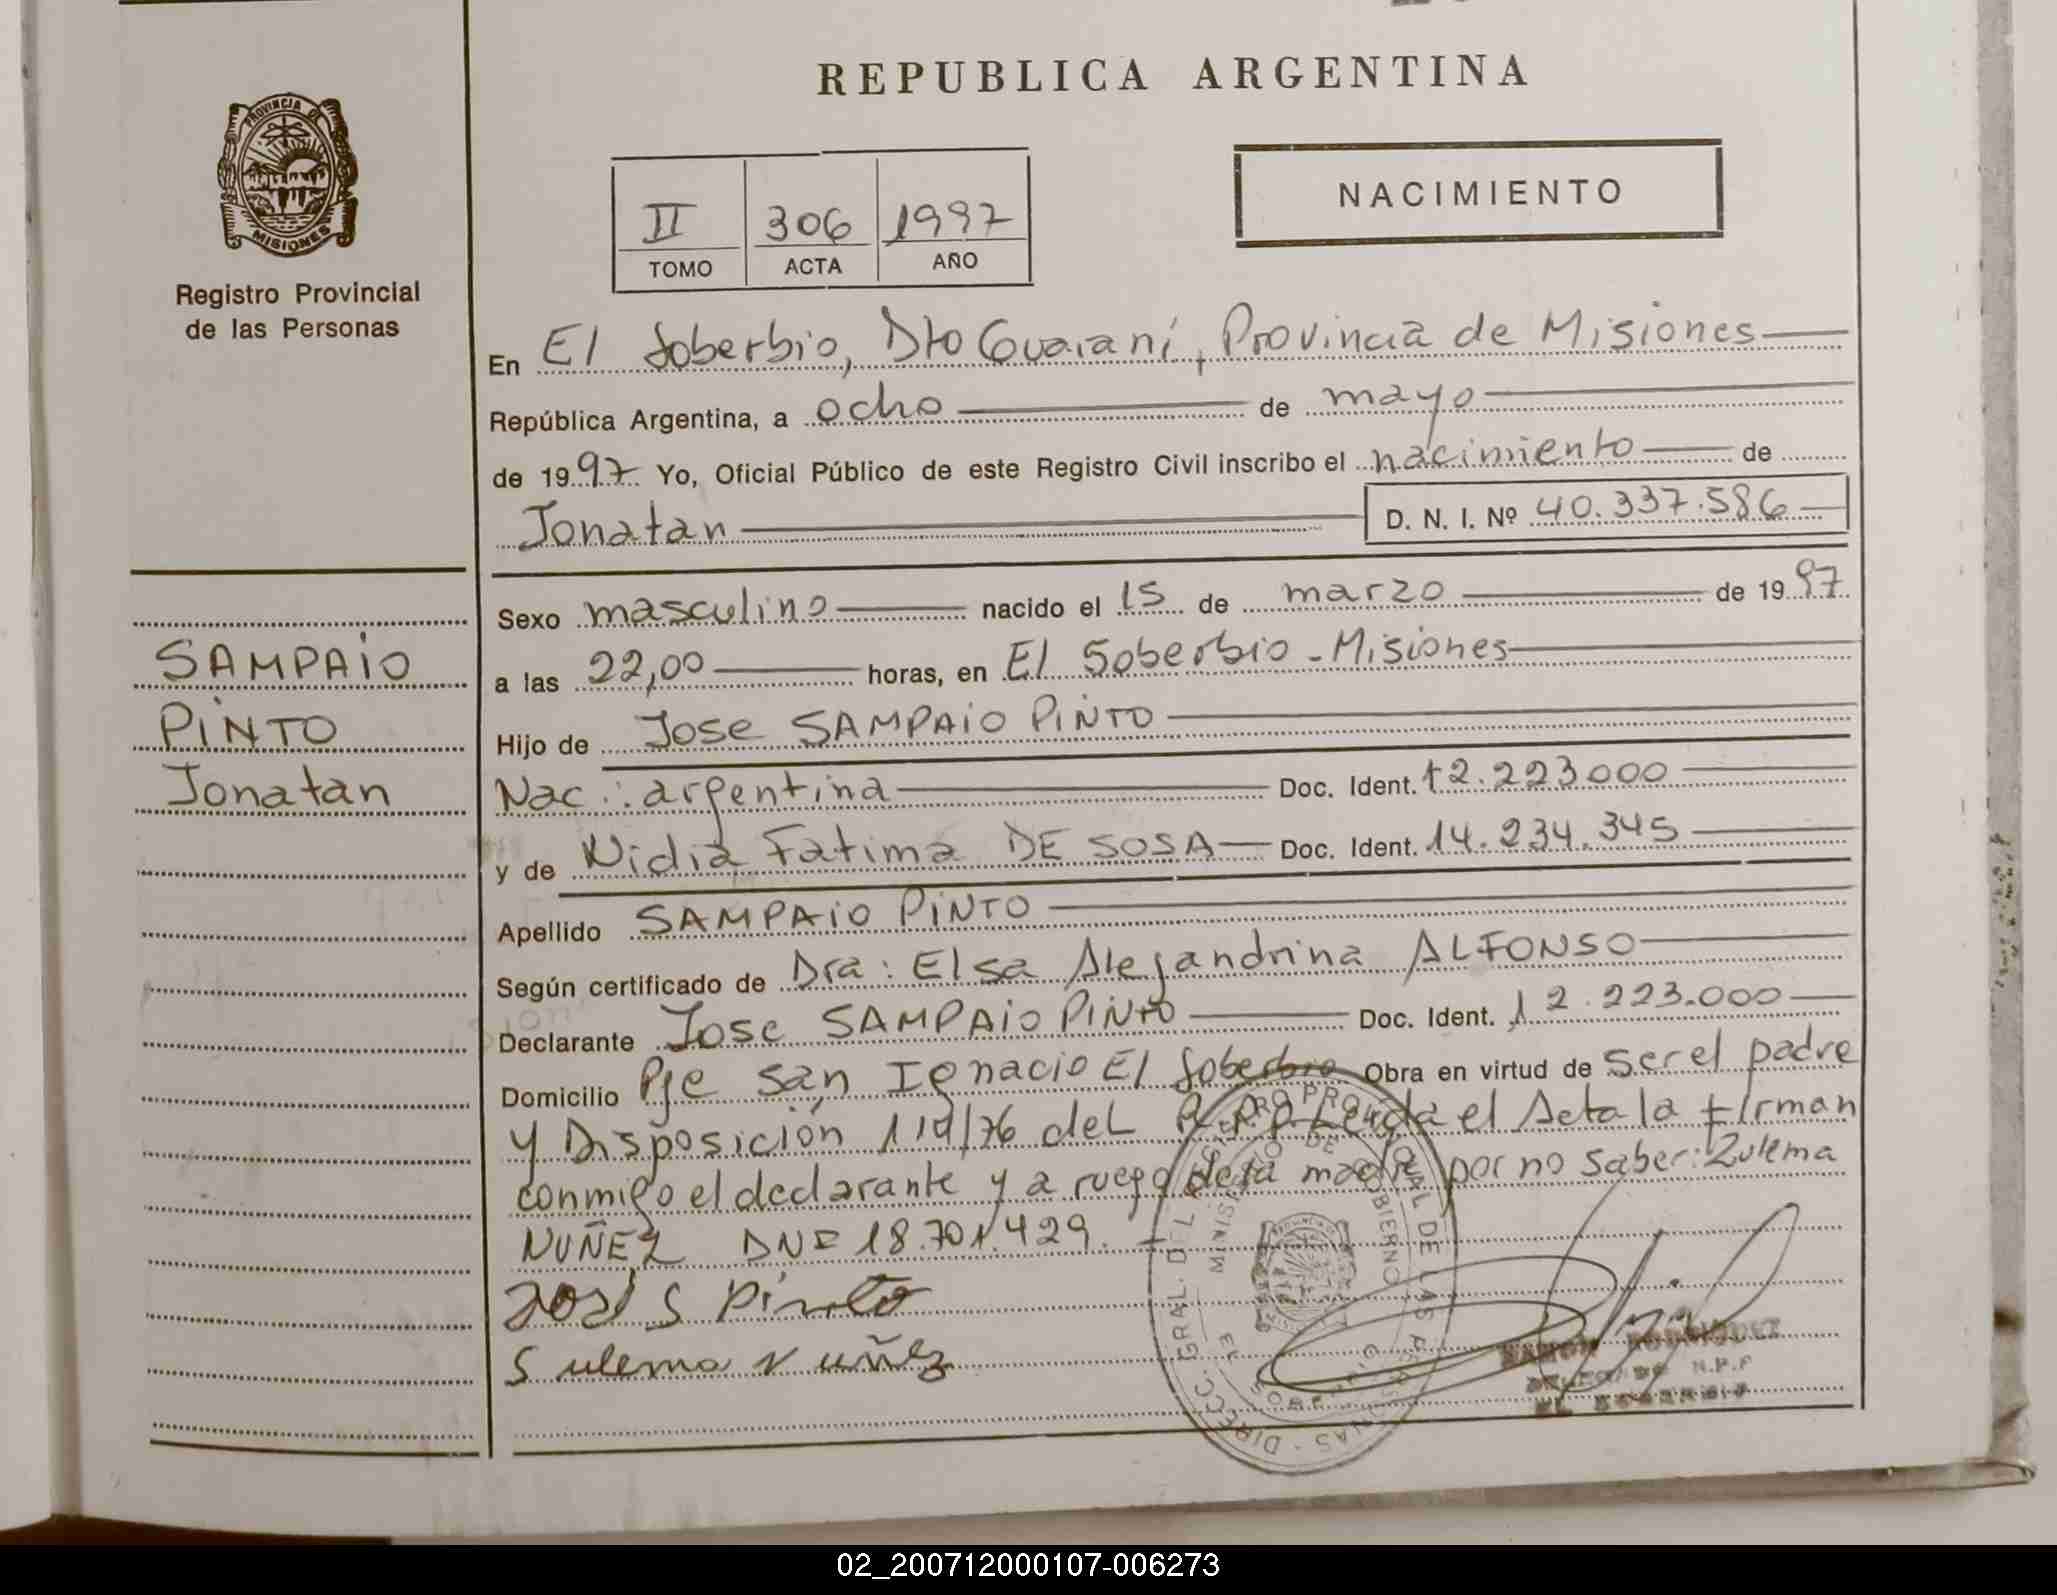 REPUBLICA ARGENTINA
PROVINCIA DE
MISIONES
Registro Provincial
de las Personas
NACIMIENTO
II 306 1997
TOMO ACTA AÑO
En El Soberbio, Dto Guaraní, Provincia de Misiones
República Argentina, a ocho de mayo
de 1997 Yo, Oficial Público de este Registro Civil inscribo el nacimiento de
Jonatan D. N. I. Nº 40.337.586
Sexo masculino nacido el 15 de marzo de 1997
a las 22,00 horas, en El Soberbio - Misiones
Hijo de Jose SAMPAIO PINTO
Nac.: argentina Doc. Ident. 12.223000
y de Nidia Fatima DE SOSA Doc. Ident. 14.234.345
Apellido SAMPAIO PINTO
Según certificado de Dra: Elsa Alejandrina ALFONSO
Declarante Jose SAMPAIO PINTO Doc. Ident. 12.223.000
Domicilio Pje San Ignacio El Soberbio Obra en virtud de ser el padre
y Disposición 119/76 del R.P.P. Leída el Acta la firman
conmigo el declarante y a ruego de la madre por no saber: Zulema
NUÑEZ DNI 18.701.429.
José S Pinto
Sulema Nuñez
SAMPAIO
PINTO
Jonatan
DIRECC. GRAL. DEL REGISTRO PROVINCIAL DE LAS PERSONAS
MINISTERIO DE GOBIERNO
EL SOBERBIO
RAMON RODRIGUEZ
DELEGADO R.P.P
EL SOBERBIO
02_200712000107-006273